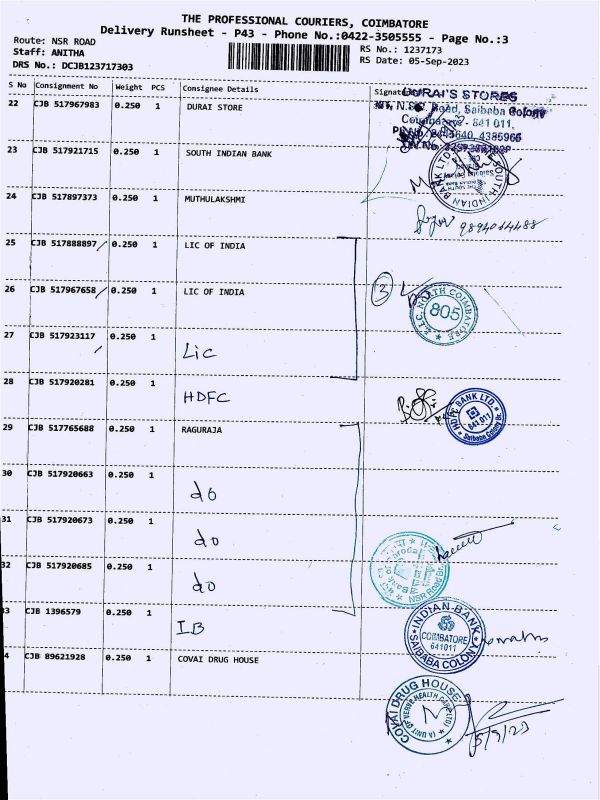 THE PROFESSIONAL COURIERS, COIMBATORE
Delivery Runsheet - P43 - Phone No.:0422-3505555 - Page No.:3
Route: NSR ROAD
Staff: ANITHA
DRS No.: DCJB123717303
RS No.: 1237173
RS Date: 05-Sep-2023
S No Consignment No Weight PCS Consignee Details Signat
22 CJB 517967983 0.250 1 DURAI STORE
DURAI'S STORES
N.S.R. Road, Saibaba Colony
Coimbatore - 641 011.
23 CJB 517921715 0.250 1 SOUTH INDIAN BANK
SOUTH INDIAN BANK LTD
24 CJB 517897373 0.250 1 MUTHULAKSHMI
25 CJB 517888897 0.250 1 LIC OF INDIA
26 CJB 517967658 0.250 1 LIC OF INDIA
3
L.I.C. NORTH COIMBATORE
805
27 CJB 517923117 0.250 1
Lic
28 CJB 517920281 0.250 1
HDFC
HDFC BANK LTD.
641 011
Saibaba Colony Br.
29 CJB 517765688 0.250 1 RAGURAJA
30 CJB 517920663 0.250 1
do
31 CJB 517920673 0.250 1
do
32 CJB 517920685 0.250 1
do
NSR Road Br.
3 CJB 1396579 0.250 1
IB
INDIAN BANK
COIMBATORE
641011
SAIBABA COLONY
4 CJB 89621928 0.250 1 COVAI DRUG HOUSE
COVAI DRUG HOUSE
5/9/23